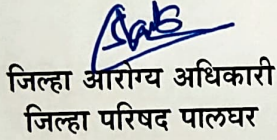 जिल्हा आरोग्य अधिकारी
जिल्हा परिषद पालघर